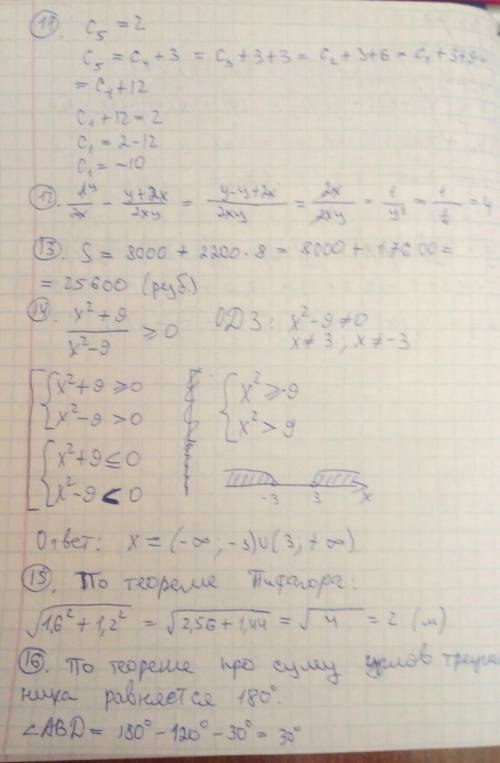 11. c₅ = 2
c₅ = c₄ + 3 = c₃ + 3 + 3 = c₂ + 3 + 6 = c₁ + 3 + 9 =
= c₁ + 12
c₁ + 12 = 2
c₁ = 2 - 12
c₁ = -10
12. 1^y/2x - (y+2x)/2xy = (y-y+2x)/2xy = 2x/2xy = 1/y = = 4
13. S = 8000 + 2200·8 = 8000 + 17600 =
= 25600 (руб.)
14. (x²+9)/(x²-9) ≥ 0 ОДЗ: x²-9≠0
x≠3; x≠-3
x²+9 ≥ 0
x²-9 > 0
x²+9 ≤ 0
x²-9 < 0
x² ≥ -9
x² > 9
-3 3 x
Ответ: x = (-∞; -3)∪(3; +∞)
15. По теореме Пифагора:
√(1,6² + 1,2²) = √(2,56 + 1,44) = √4 = 2 (м)
16. По теореме про суму углов треуго
ника равняется 180°.
∠ABD = 180° - 120° - 30° = 30°